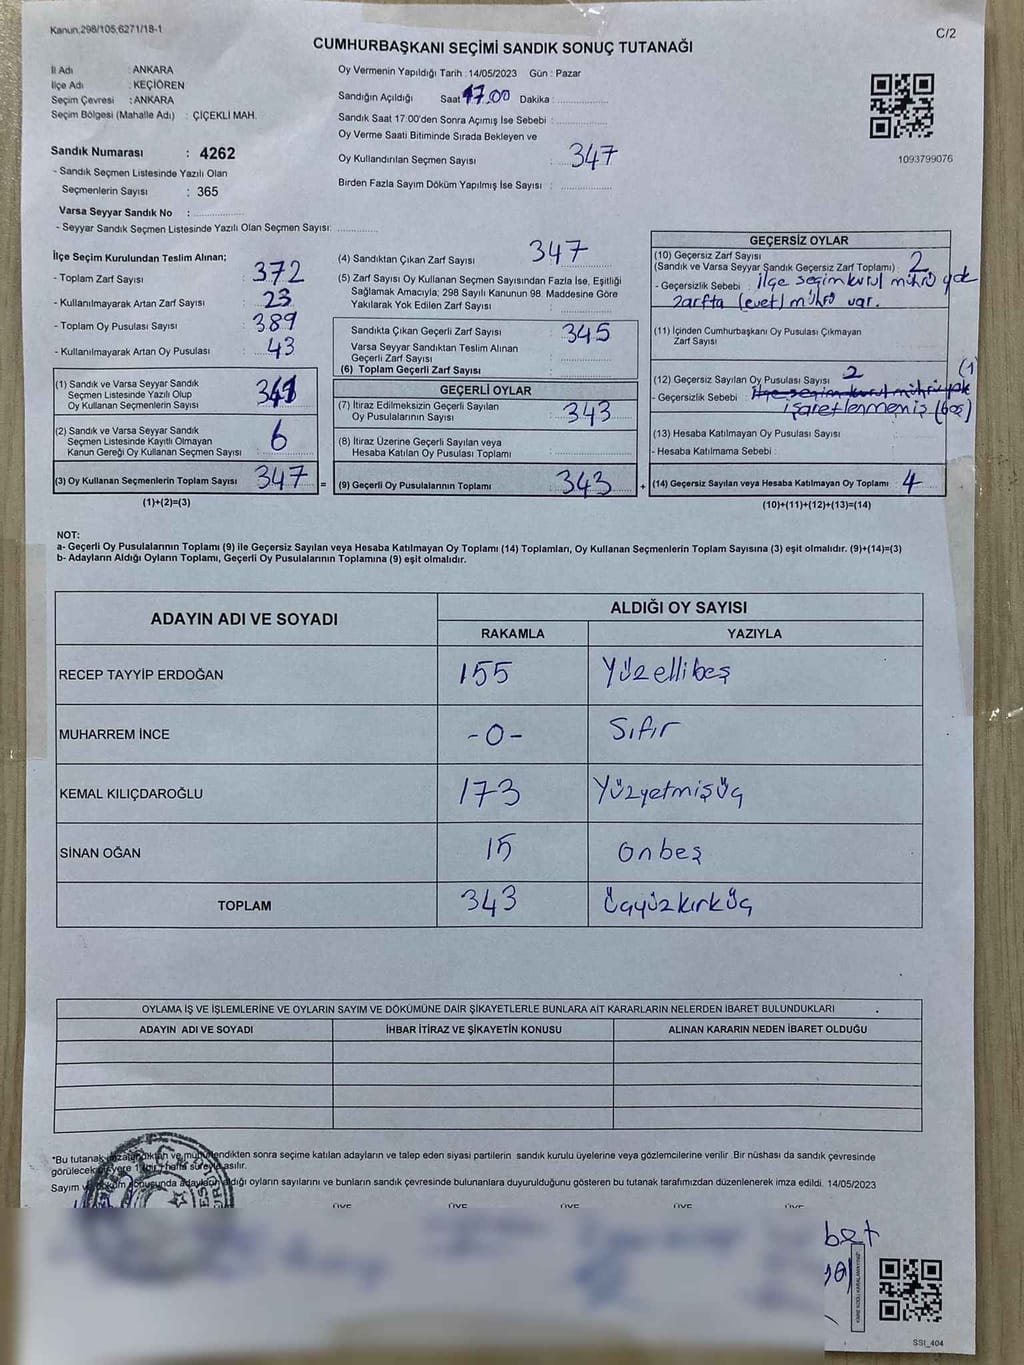 Kanun.298/105.6271/18-1
C/2
CUMHURBAŞKANI SEÇİMİ SANDIK SONUÇ TUTANAĞI
İl Adı : ANKARA
İlçe Adı : KEÇİÖREN
Seçim Çevresi : ANKARA
Seçim Bölgesi (Mahalle Adı) : ÇİÇEKLİ MAH.
Sandık Numarası : 4262
- Sandık Seçmen Listesinde Yazılı Olan
Seçmenlerin Sayısı : 365
Varsa Seyyar Sandık No :
- Seyyar Sandık Seçmen Listesinde Yazılı Olan Seçmen Sayısı:
Oy Vermenin Yapıldığı Tarih : 14/05/2023 Gün : Pazar
Sandığın Açıldığı Saat 17.00 Dakika :
Sandık Saat 17:00'den Sonra Açımış İse Sebebi :
Oy Verme Saati Bitiminde Sırada Bekleyen ve
Oy Kullandırılan Seçmen Sayısı : 347
Birden Fazla Sayım Döküm Yapılmış İse Sayısı :
1093799076
İlçe Seçim Kurulundan Teslim Alınan;
- Toplam Zarf Sayısı : 372
- Kullanılmayarak Artan Zarf Sayısı : 23
- Toplam Oy Pusulası Sayısı : 389
- Kullanılmayarak Artan Oy Pusulası : 43
(1) Sandık ve Varsa Seyyar Sandık
Seçmen Listesinde Yazılı Olup
Oy Kullanan Seçmenlerin Sayısı : 341
(2) Sandık ve Varsa Seyyar Sandık
Seçmen Listesinde Kayıtlı Olmayan
Kanun Gereği Oy Kullanan Seçmen Sayısı : 6
(3) Oy Kullanan Seçmenlerin Toplam Sayısı : 347 =
(1)+(2)=(3)
(4) Sandıktan Çıkan Zarf Sayısı : 347
(5) Zarf Sayısı Oy Kullanan Seçmen Sayısından Fazla İse, Eşitliği
Sağlamak Amacıyla; 298 Sayılı Kanunun 98. Maddesine Göre
Yakılarak Yok Edilen Zarf Sayısı :
Sandıkta Çıkan Geçerli Zarf Sayısı : 345
Varsa Seyyar Sandıktan Teslim Alınan
Geçerli Zarf Sayısı :
(6) Toplam Geçerli Zarf Sayısı :
GEÇERLİ OYLAR
(7) İtiraz Edilmeksizin Geçerli Sayılan
Oy Pusulalarının Sayısı : 343
(8) İtiraz Üzerine Geçerli Sayılan veya
Hesaba Katılan Oy Pusulası Toplamı :
(9) Geçerli Oy Pusulalarının Toplamı : 343 +
GEÇERSİZ OYLAR
(10) Geçersiz Zarf Sayısı
(Sandık ve Varsa Seyyar Sandık Geçersiz Zarf Toplamı) : 2
- Geçersizlik Sebebi : ilçe seçim kurul mührü yok
zarfta (evet) mührü var.
(11) İçinden Cumhurbaşkanı Oy Pusulası Çıkmayan
Zarf Sayısı :
(12) Geçersiz Sayılan Oy Pusulası Sayısı : 2 (1)
- Geçersizlik Sebebi : ilçe seçim kurul mührü yok
işaretlenmemiş (boş)
(13) Hesaba Katılmayan Oy Pusulası Sayısı :
- Hesaba Katılmama Sebebi :
(14) Geçersiz Sayılan veya Hesaba Katılmayan Oy Toplamı : 4
(10)+(11)+(12)+(13)=(14)
NOT:
a- Geçerli Oy Pusulalarının Toplamı (9) ile Geçersiz Sayılan veya Hesaba Katılmayan Oy Toplamı (14) Toplamları, Oy Kullanan Seçmenlerin Toplam Sayısına (3) eşit olmalıdır. (9)+(14)=(3)
b- Adayların Aldığı Oyların Toplamı, Geçerli Oy Pusulalarının Toplamına (9) eşit olmalıdır.
ADAYIN ADI VE SOYADI
ALDIĞI OY SAYISI
RAKAMLA YAZIYLA
RECEP TAYYİP ERDOĞAN 155 Yüzellibeş
MUHARREM İNCE -0- Sıfır
KEMAL KILIÇDAROĞLU 173 Yüzyetmişüç
SİNAN OĞAN 15 Onbeş
TOPLAM 343 Üçyüzkırküç
OYLAMA İŞ VE İŞLEMLERİNE VE OYLARIN SAYIM VE DÖKÜMÜNE DAİR ŞİKAYETLERLE BUNLARA AİT KARARLARIN NELERDEN İBARET BULUNDUKLARI
ADAYIN ADI VE SOYADI İHBAR İTİRAZ VE ŞİKAYETİN KONUSU ALINAN KARARIN NEDEN İBARET OLDUĞU
*Bu tutanak sonra seçime katılan adayların ve talep eden siyasi partilerin sandık kurulu üyelerine veya gözlemcilerine verilir .Bir nüshası da sandık çevresinde
görülecek yere 1 hafta süreyle asılır.
Sayım ve aldığı oyların sayılarını ve bunların sandık çevresinde bulunanlara duyurulduğunu gösteren bu tutanak tarafımızdan düzenlenerek imza edildi. 14/05/2023
ÜYE ÜYE ÜYE ÜYE ÜYE
SSİ_404